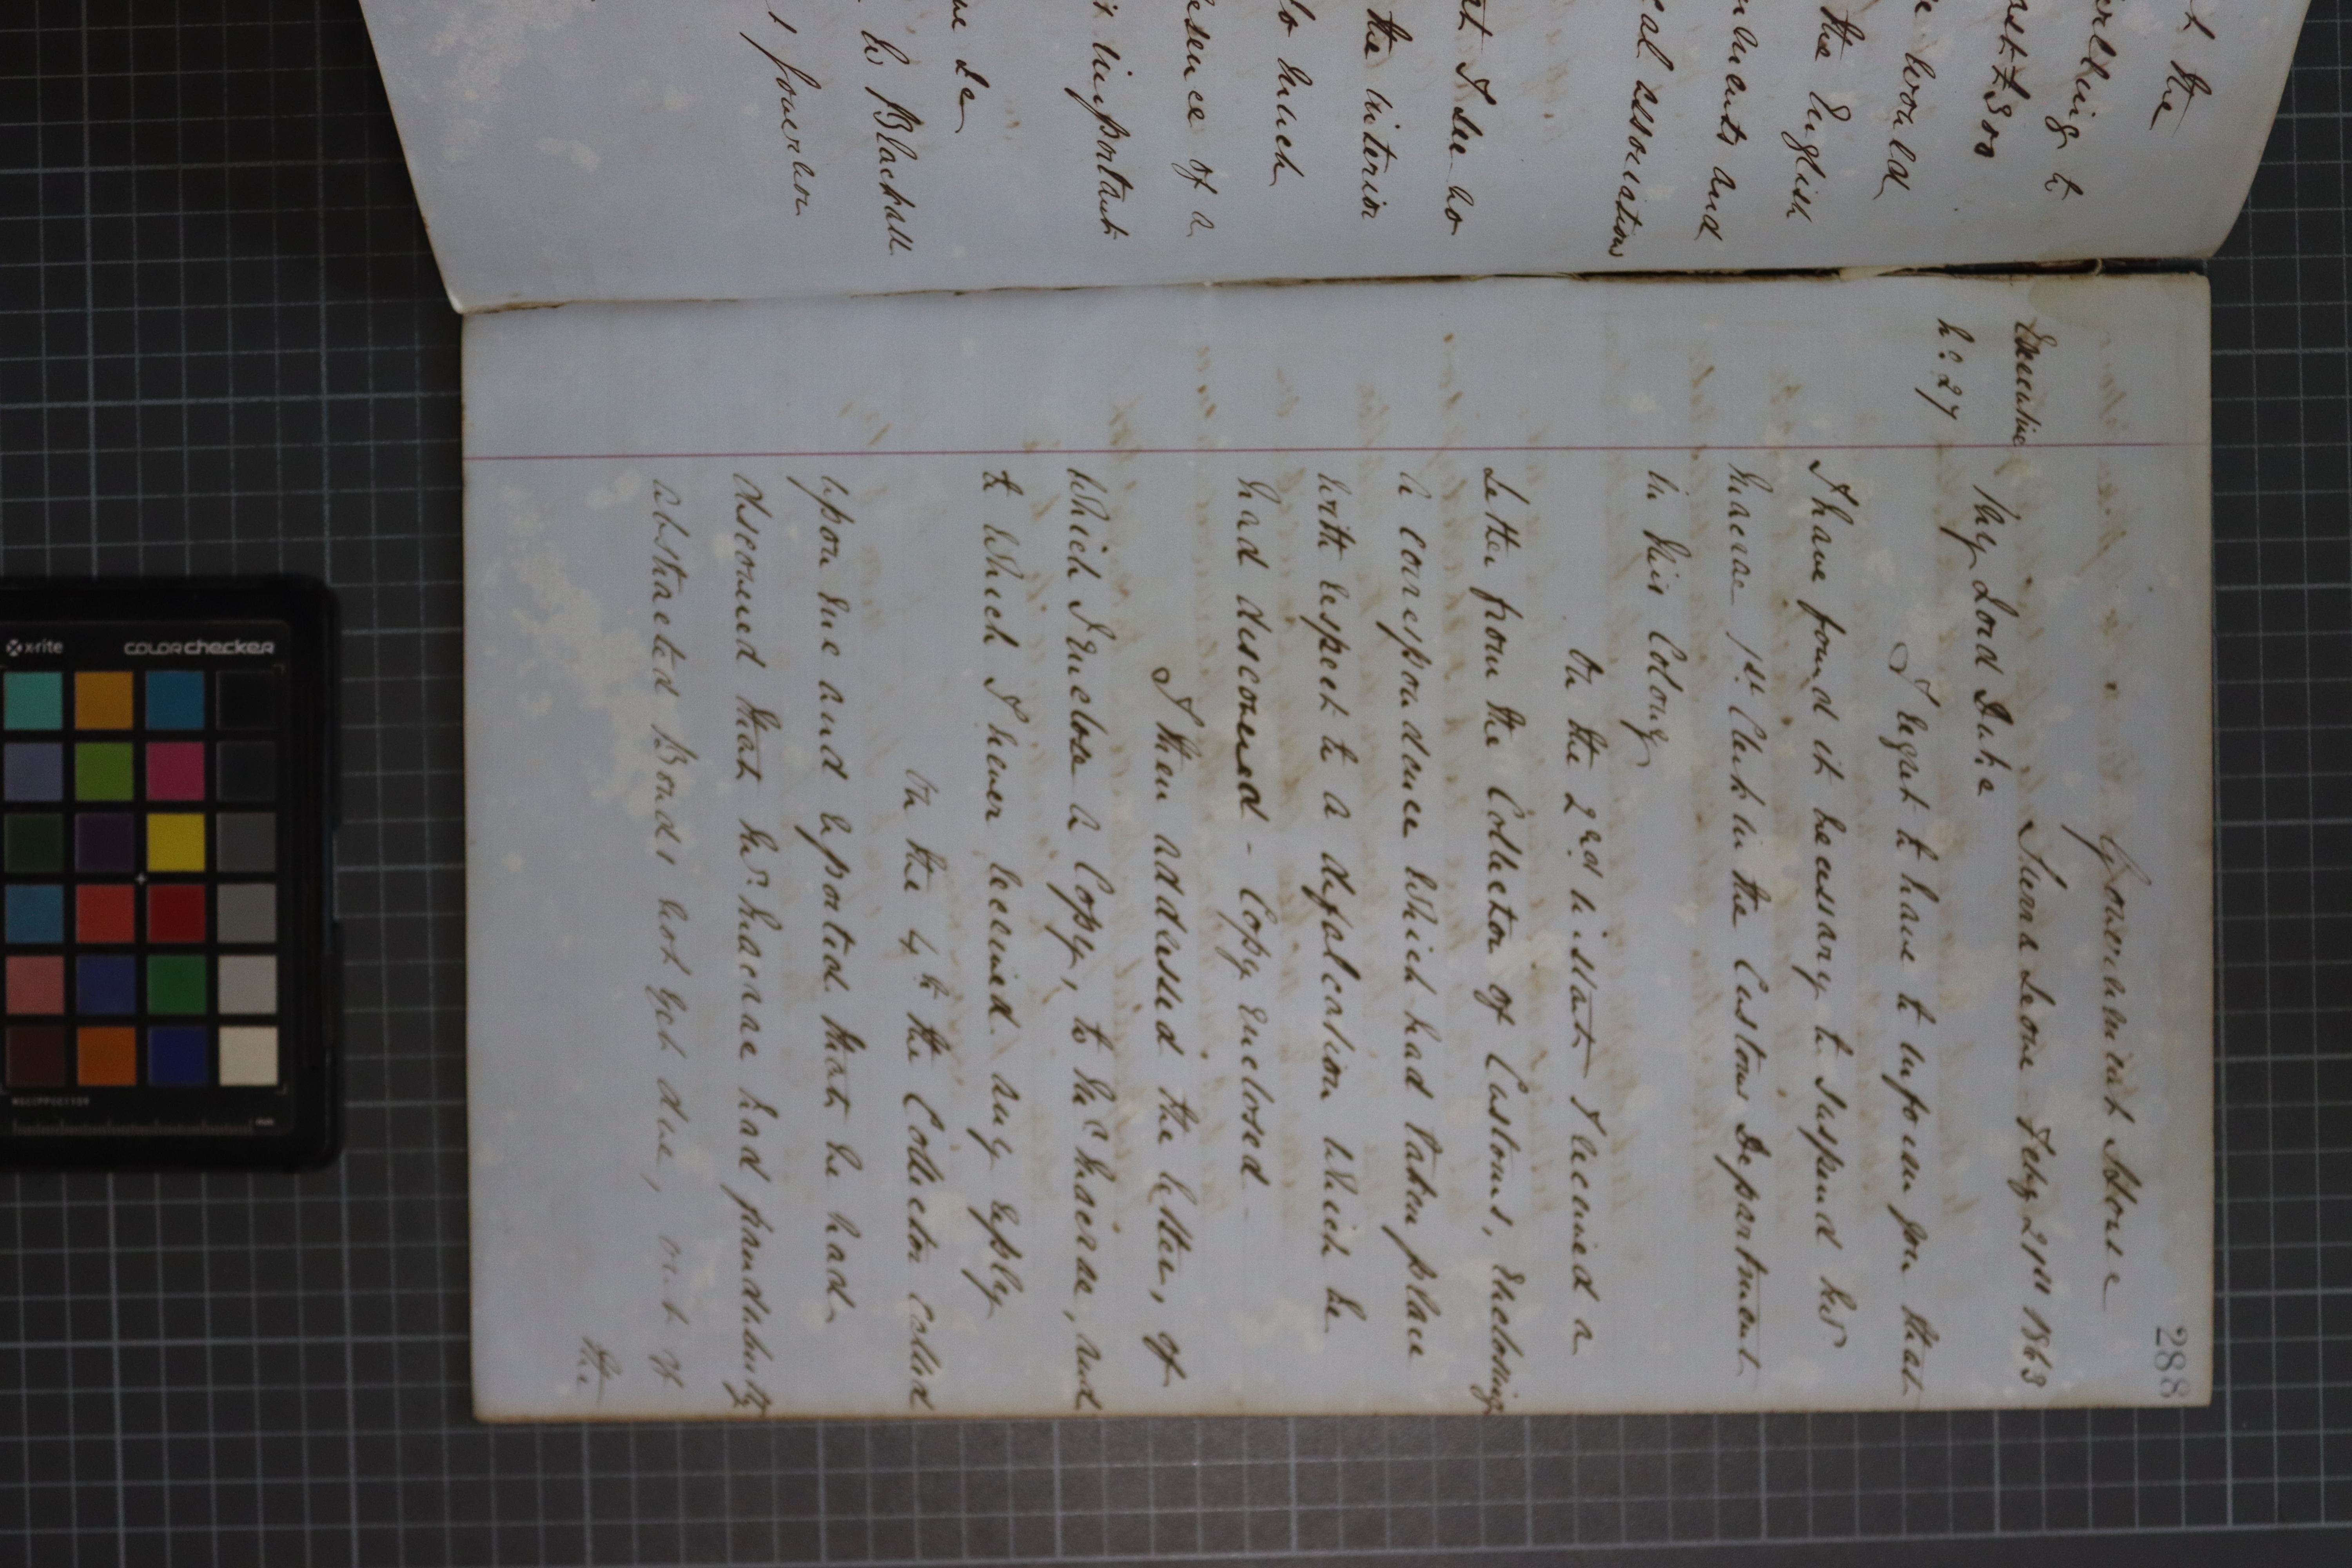 t the
erling to
ast £800
e would
the English
nments and
cal associations
at I see no
the interior
so much
esence of a
important
me be
S. W. Blackall
Governor
288
Government House
Sierra Leone - Feby 21st 1863
Executive
No. 27
My Lord Duke
I regret to have to inform you that
I have found it necessary to suspend Mr.
Macrae 1st. Clerk in the Customs Department
in this Colony
On the 2nd instant I received a
Letter from the Collector of Customs, enclosing
a correspondence which had taken place
with respect to a defalcation which he
had discovered - Copy enclosed -
I then addressed the letter, of
which I enclose a Copy, to Mr. Macrae, and
to which I never received any reply
On the 4th the Collector called
upon me and reported that he had
discovered that Mr. Macrae had fraudulently
abstracted Bonds not yet due, out of
the
x-rite
COLORchecker